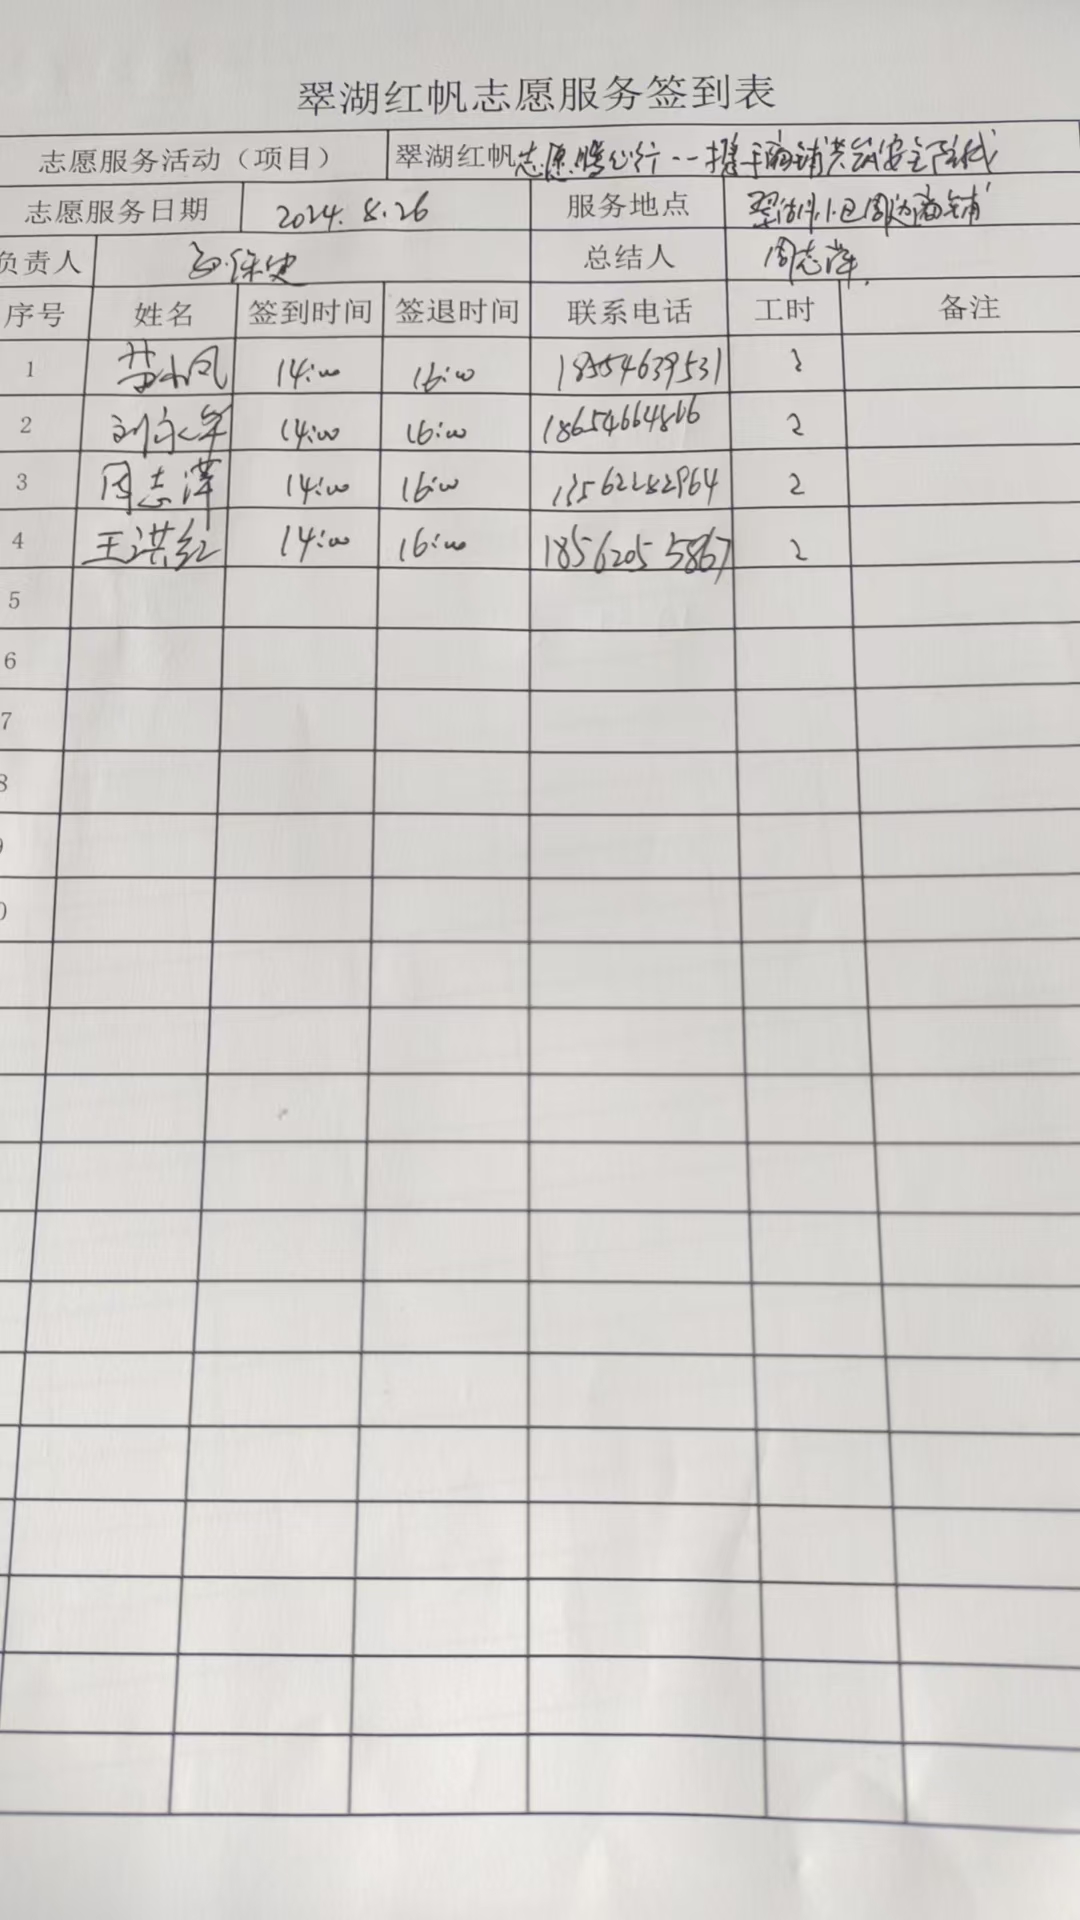 翠湖红帆志愿服务签到表
志愿服务活动（项目） 翠湖红帆志愿暖心行--携手商铺共筑安全防线
志愿服务日期 2024.8.26 服务地点 翠湖小区周边商铺
负责人 总结人 周志萍
序号 姓名 签到时间 签退时间 联系电话 工时 备注
1 14:00 16:00 18554639531 2
2 刘永军 14:00 16:00 18654664866 2
3 周志萍 14:00 16:00 13562282964 2
4 王洪红 14:00 16:00 18562055867 2
5
6
7
8
9
0